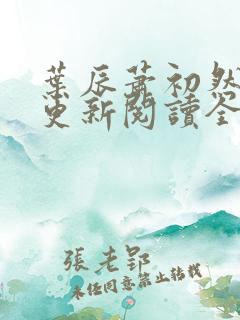 葉辰蕭初然
更新閱讀全
張老郢
未經同意禁止轉載